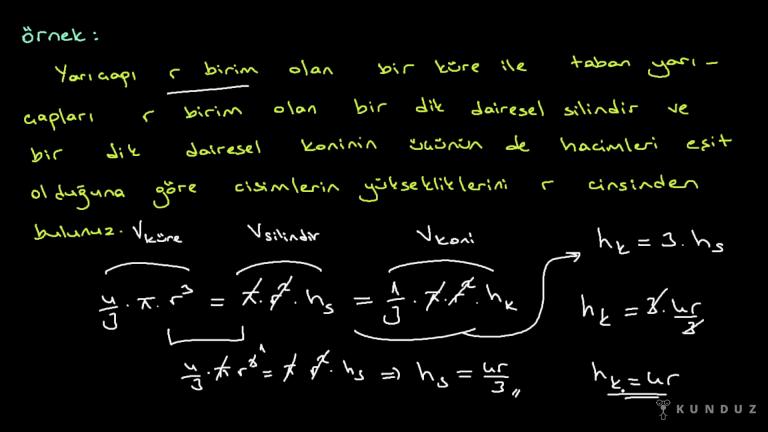 örnek:
Yarıçapı r birim olan bir küre ile taban yarı-
çapları r birim olan bir dik dairesel silindir ve
bir dik dairesel koninin üçünün de hacimleri eşit
olduğuna göre cisimlerin yüksekliklerini r cinsinden
bulunuz. Vküre Vsilindir Vkoni
4/3 . π . r³ = π . r² . hs = 1/3 . π . r² . hk
4/3 . π r³ = π r² . hs ⇒ hs = 4r/3 〃
hk = 3 . hs
hk = 3 . 4r/3
hk = 4r
KUNDUZ